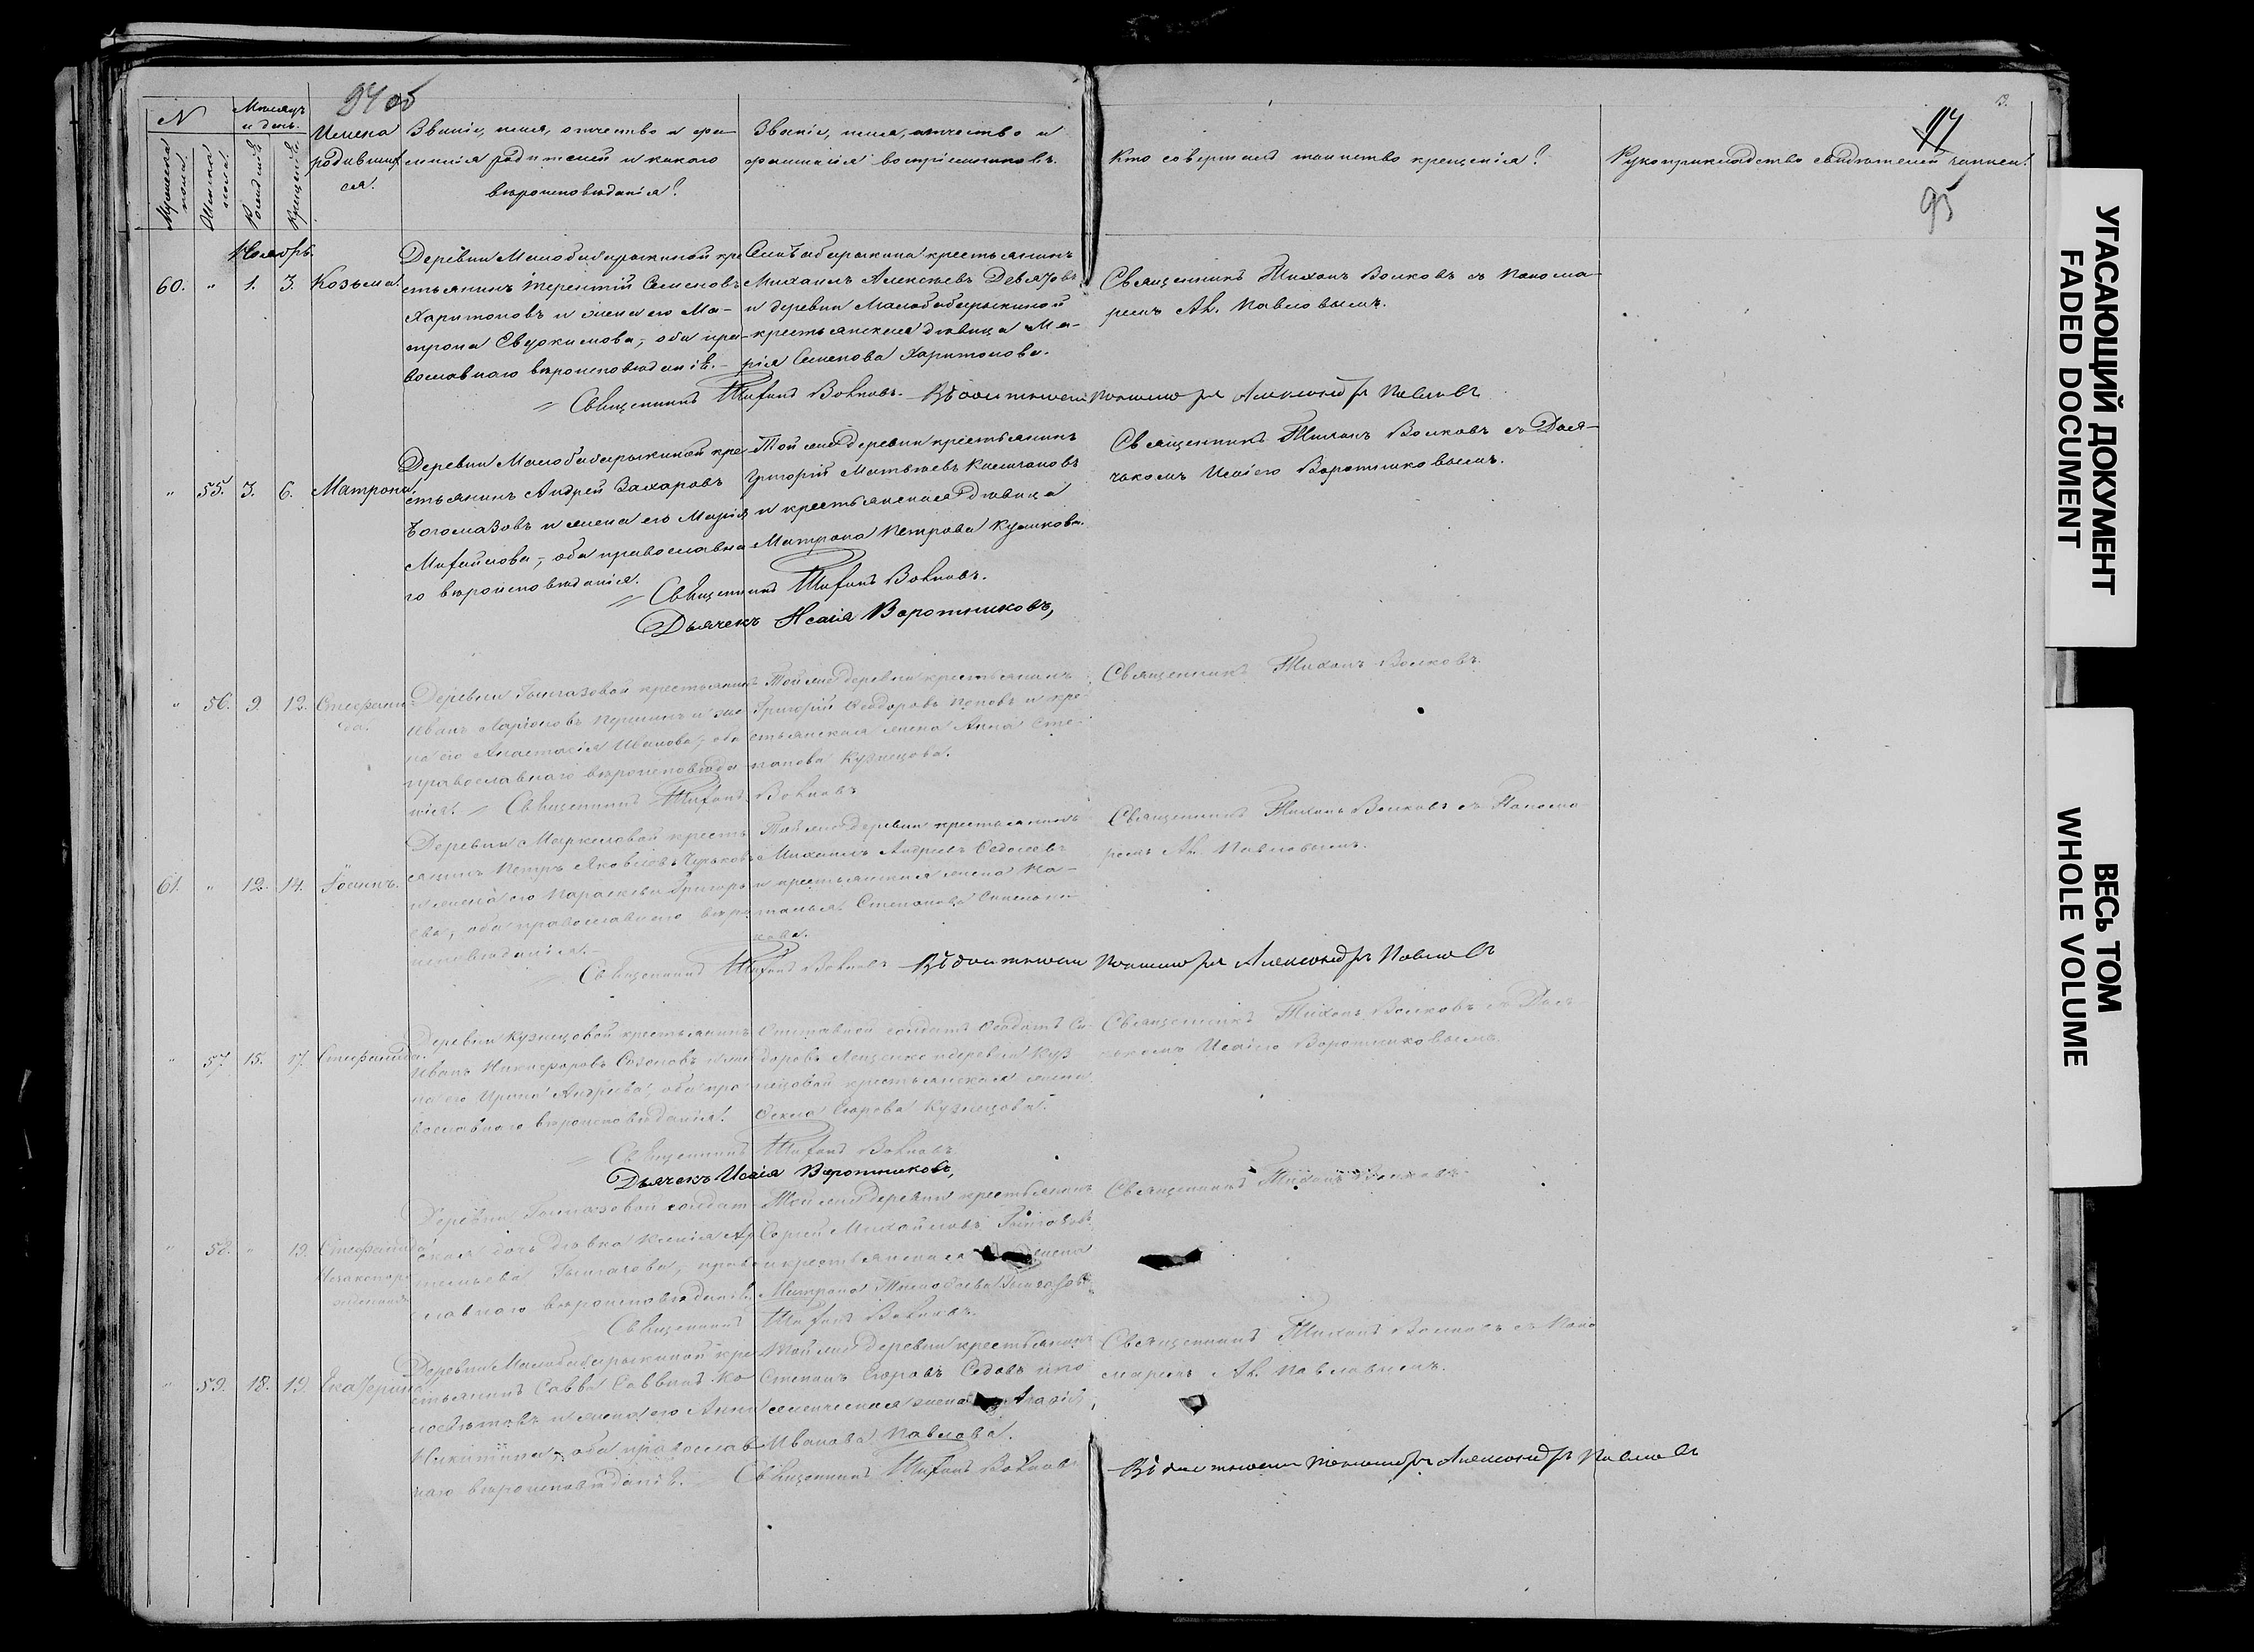 94 об
N
Мѣсяцъ
и день.
Мужеска
пола.
Женска
пола.
Рожденiя
Крещенiя.
Имена
родивших
ся.
Званiе, имя, отчество и фа-
милiя родителей и какого
вѣроисповѣданiя?
Званiе, имя, отчество и
фамилiя воспрiемниковъ.
Кто совершалъ таинство крещенiя?
Рукоприкладство свидѣтелей записи?
95
Ноябрь.
60. " 1. 3. Козьма.
Деревни Малобабарыкиной кре
стьянинъ Терентiй Семеновъ
Харитоновъ и жена его Ма-
трона Евдокимова; оба пра-
вославнаго вѣроисповѣданiя.-
крестьянинъ
Михаилъ Алексѣевъ Девятовъ
и деревни Малобабарыкиной
крестьянская дѣвица Ма-
рiя Семенова Харитонова.
Священникъ Тихонъ Волковъ съ понома-
ремъ Ал. Павловымъ.
Священникъ Тихонъ Волковъ.- пономарь Александръ Павловъ
" 55. 3. 6. Матрона.
Деревни Малобабарыкиной кре
стьянинъ Андрей Захаровъ
Богомазовъ и жена его Марiя
Михайлова; оба православна
го вѣроисповѣданiя.
Той же деревни крестьянинъ
Григорiй Матвѣевъ
и крестьянская дѣвица
Матрона Петрова
Священникъ Тихонъ Волковъ съ Дья-
чкомъ Исаiею Воротниковымъ.
Священникъ Тихонъ Волковъ.
Дьячекъ Исаiя Воротниковъ,
" 56. 9. 12. Стефани
да.
Деревни крестьянинъ
Иванъ Ларiоновъ и же
на его Анастасiя Иванова; оба
православнаго вѣроисповѣда
нiя. Священникъ Тихонъ Волковъ
Той же деревни крестьянинъ
Григорiй Ѳеодоровъ Поповъ и кре
стьянская жена Анна Сте-
панова Кузнецова.
Священникъ Тихонъ Волковъ.
61. " 12. 14. Iоаннъ.
Деревни Маркеловой кресть
янинъ Петръ Яковлевъ
и жена его Параскева Григорь
ева; оба православнаго вѣро
исповѣданiя.-
Той же деревни крестьянинъ
Михаилъ Андреевъ
и крестьянская жена На-
талья Степанова
Священникъ Тихонъ Волковъ съ Понома
ремъ Ал. Павловымъ.
Священникъ Тихонъ Волковъ пономарь Александръ Павловъ
" 57. 15. 17. Стефанида.
Деревни Кузнецовой крестьянинъ
Иванъ Никифоровъ Созоновъ и же
на его Ирина Андреева; оба пра
вославнаго вѣроисповѣданiя.
Отставной солдатъ Ѳеодотъ Си-
доровъ и деревни Куз
нецовой крестьянская жена
Егорова Кузнецова.
Священникъ Тихонъ Волковъ съ Дья
чкомъ Исаiею Воротниковымъ.
Священникъ Тихонъ Волковъ.
Дьячекъ Исаiя Воротниковъ,
" 58. " 19. Стефанида
Незаконоро
жденная
Деревни солдат
ская дочь дѣвка Ксенiя Ар
темьева православ
славнаго вѣроисповѣданiя.
Той же деревни крестьянинъ
Сергей Михайловъ
и крестьянская жена
Матрона
Священникъ Тихонъ Волковъ.
Священникъ Тихонъ Волковъ.
" 59. 18. 19. Екатерина
Деревни Малобабарыкиной кре
стьянинъ Савва Саввинъ
и жена его Анна
Никитина; оба православ
наго вѣроисповѣданiя.
Той же деревни крестьянинъ
Степанъ Егоровъ Седовъ и по
жена
Иванова Павлова.
Священникъ Тихонъ Волковъ съ Поно
маремъ Ал. Павловымъ.
Священникъ Тихонъ Волковъ
пономарь Александръ Павловъ
УГАСАЮЩИЙ ДОКУМЕНТ
FADED DOCUMENT
ВЕСЬ ТОМ
WHOLE VOLUME